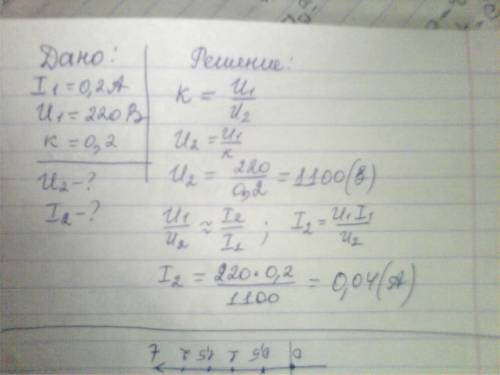 Дано:
I₁ = 0,2 А
U₁ = 220 В
к = 0,2
U₂ - ?
I₂ - ?
Решение:
К = U₁/U₂
U₂ = U₁/к
U₂ = 220/0,2 = 1100 (В)
U₁/U₂ ≈ I₂/I₁ ; I₂ = U₁I₁/U₂
I₂ = 220·0,2/1100 = 0,04 (А)
0 0,5 1 1,5 2